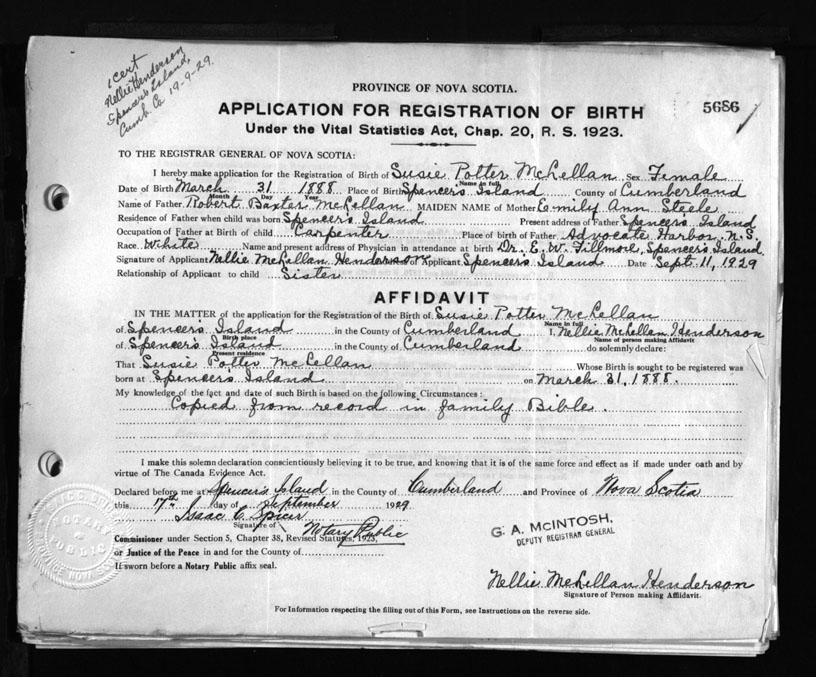 1 cert
Nellie Henderson
Spencer's Island,
Cumb. Co 19-9-29.
PROVINCE OF NOVA SCOTIA.
APPLICATION FOR REGISTRATION OF BIRTH
5686
Under the Vital Statistics Act, Chap. 20, R. S. 1923.
TO THE REGISTRAR GENERAL OF NOVA SCOTIA:
I hereby make application for the Registration of Birth of Susie Potter McLellan Sex Female
Name in full
Date of Birth March 31 1888 Place of Birth Spencer's Island County of Cumberland
Month Day Year
Name of Father Robert Baxter McLellan MAIDEN NAME of Mother Emily Ann Steele
Residence of Father when child was born Spencer's Island Present address of Father Spencer's Island
Occupation of Father at Birth of child Carpenter Place of birth of Father Advocate Harbor, N.S.
Race White Name and present address of Physician in attendance at birth Dr. E. W. Fillmore, Spencer's Island.
Signature of Applicant Nellie McLellan Henderson of Applicant Spencer's Island Date Sept. 11, 1929
Relationship of Applicant to child Sister
AFFIDAVIT
IN THE MATTER of the application for the Registration of the Birth of Susie Potter McLellan
Name in full
of Spencer's Island in the County of Cumberland I, Nellie McLellan Henderson
Birth place Name of person making Affidavit
of Spencer's Island in the County of Cumberland do solemnly declare:
Present residence
That Susie Potter McLellan Whose Birth is sought to be registered was
born at Spencer's Island on March 31, 1888.
My knowledge of the fact and date of such Birth is based on the following Circumstances:
Copied from record in family Bible.
I make this solemn declaration conscientiously believing it to be true, and knowing that it is of the same force and effect as if made under oath and by
virtue of The Canada Evidence Act.
Declared before me at Spencer's Island in the County of Cumberland and Province of Nova Scotia
this 17th day of September 1929
Isaac C. Spicer
Signature of Notary Public
Commissioner under Section 5, Chapter 38, Revised Statutes, 1923,
or Justice of the Peace in and for the County of
If sworn before a Notary Public affix seal.
G. A. McINTOSH,
DEPUTY REGISTRAR GENERAL
Nellie McLellan Henderson
Signature of Person making Affidavit.
For Information respecting the filling out of this Form, see Instructions on the reverse side.
NOTARY
PUBLIC